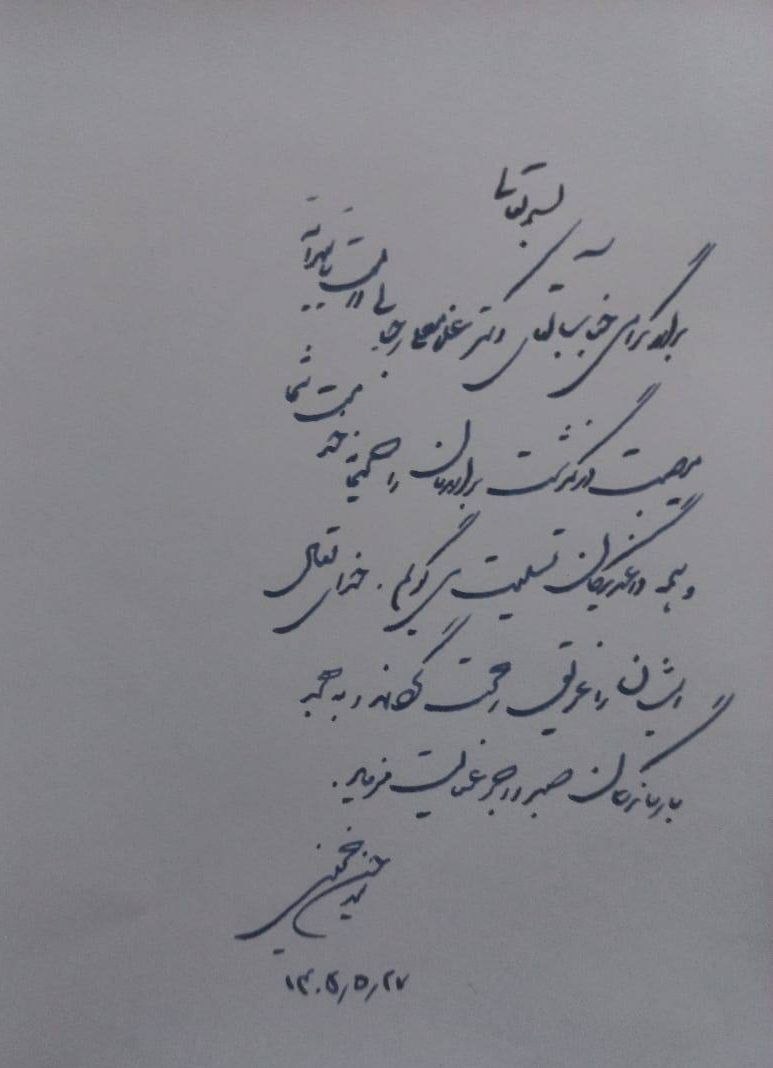 بسمه تعالی
برادر گرامی جناب آقای دکتر غلامعلی رجایی دامت تاییداته
مصیبت درگذشت برادرتان را صمیمانه خدمت شما
و همه داغدیدگان تسلیت می گویم. خدای تعالی
ایشان را غریق رحمت گرداند و به همه
بازماندگان صبر و اجر عنایت فرماید.
سید حسن خمینی
۱۴۰۴/۵/۲۷